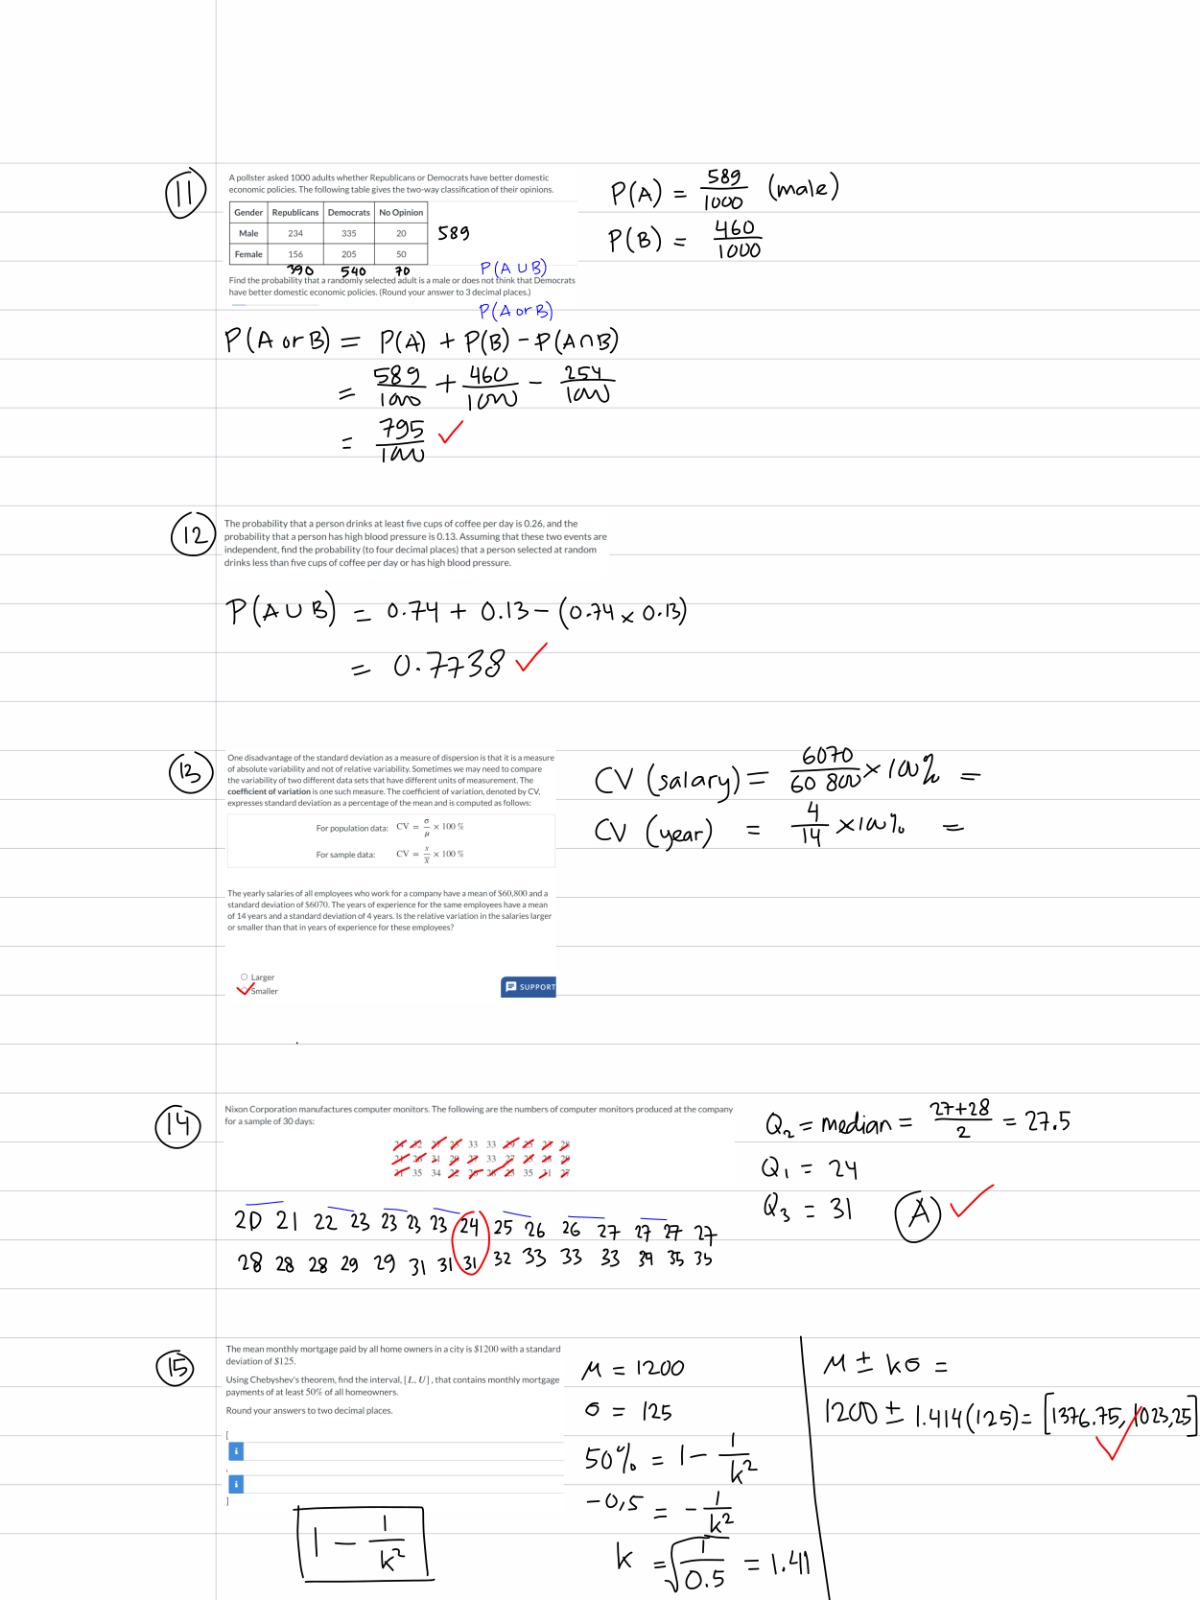 11
A pollster asked 1000 adults whether Republicans or Democrats have better domestic
economic policies. The following table gives the two-way classification of their opinions.
Gender Republicans Democrats No Opinion
Male 234 335 20 589
Female 156 205 50
390 540 70
P(A∪B)
Find the probability that a randomly selected adult is a male or does not think that Democrats
have better domestic economic policies. (Round your answer to 3 decimal places.)
P(A or B)
P(A) = 589/1000 (male)
P(B) = 460/1000
P(A or B) = P(A) + P(B) - P(A∩B)
= 589/1000 + 460/1000 - 254/1000
= 795/1000 ✓
12
The probability that a person drinks at least five cups of coffee per day is 0.26, and the
probability that a person has high blood pressure is 0.13. Assuming that these two events are
independent, find the probability (to four decimal places) that a person selected at random
drinks less than five cups of coffee per day or has high blood pressure.
P(A∪B) = 0.74 + 0.13 - (0.74 x 0.13)
= 0.7738 ✓
13
One disadvantage of the standard deviation as a measure of dispersion is that it is a measure
of absolute variability and not of relative variability. Sometimes we may need to compare
the variability of two different data sets that have different units of measurement. The
coefficient of variation is one such measure. The coefficient of variation, denoted by CV,
expresses standard deviation as a percentage of the mean and is computed as follows:
For population data: CV = σ/μ × 100 %
For sample data: CV = s/x̄ × 100 %
The yearly salaries of all employees who work for a company have a mean of $60,800 and a
standard deviation of $6070. The years of experience for the same employees have a mean
of 14 years and a standard deviation of 4 years. Is the relative variation in the salaries larger
or smaller than that in years of experience for these employees?
Larger
Smaller
SUPPORT
CV (salary) = 6070/60 800 × 100% =
CV (year) = 4/14 × 100% =
14
Nixon Corporation manufactures computer monitors. The following are the numbers of computer monitors produced at the company
for a sample of 30 days:
33 33
33
35 34 35
20 21 22 23 23 23 23 24 25 26 26 27 27 27 27
28 28 28 29 29 31 31 31 32 33 33 33 34 35 35
Q₂ = median = 27+28/2 = 27.5
Q₁ = 24
Q₃ = 31 A ✓
15
The mean monthly mortgage paid by all home owners in a city is $1200 with a standard
deviation of $125.
Using Chebyshev's theorem, find the interval, [L, U], that contains monthly mortgage
payments of at least 50% of all homeowners.
Round your answers to two decimal places.
[
i
,
i
]
1 - 1/k²
M = 1200
σ = 125
50% = 1 - 1/k²
-0,5 = - 1/k²
k = √1/0.5 = 1.41
M ± kσ =
1200 ± 1.414(125) = [1376.75, 1023,25]